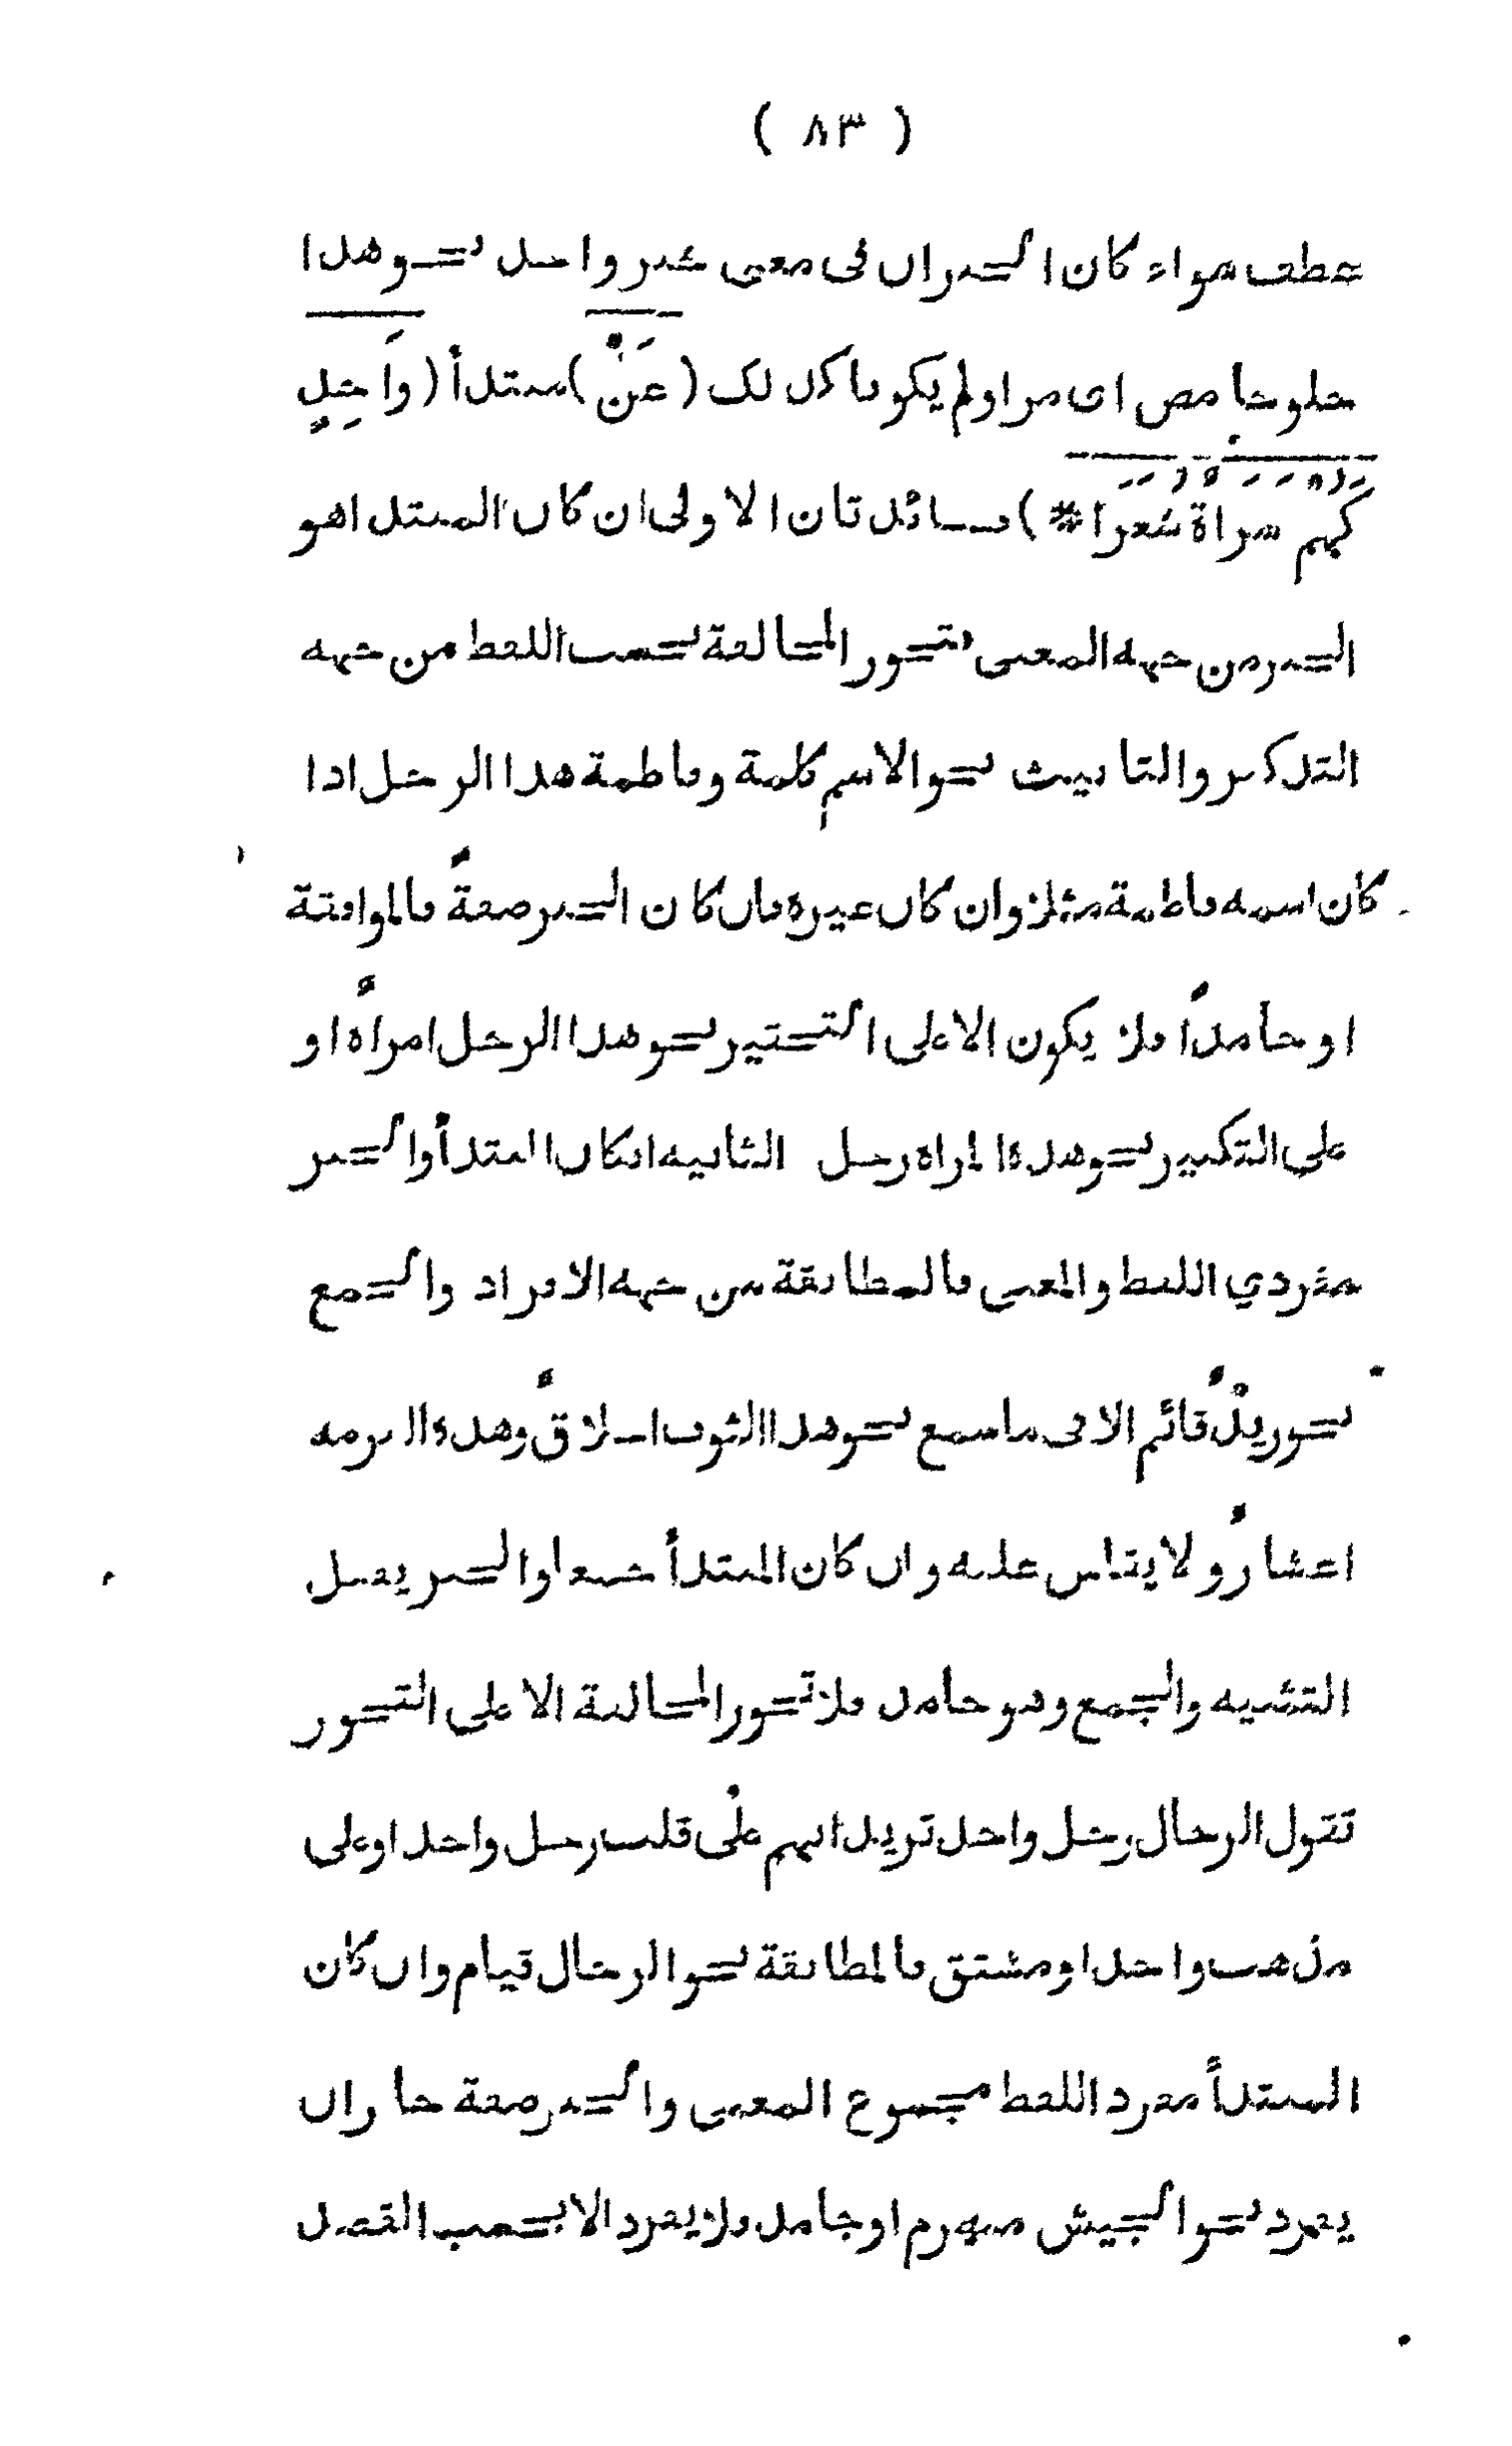 ( ٨٣ )
عطف سواء كان الخبران في معنى خبر واحد نحو هذا
حلو حامض اى مز اولم يكونا كذلك (عَنْ) مبتدأ (وَاحِدٍ
كَهُمْ سَرَاةٌ شُعَرَا *) مسائل تان الاولى ان كان المبتدا هو
الخبر من جهه المعنى فتجوز المخالفة بحسب اللفظ من جهه
التذكير والتانيث نحو الاسم كلمة وفاطمة هذا الرجل اذا
كان اسمه فاطمة مثلا وان كان غيره فان كان الخبر صفةً فالموافقة
او جامداً فلا يكون الا على التحقير نحو هذا الرجل امرأةً او
على التكبير نحو هذه المراة رجل الثانيه انكان المبتدأ والخبر
مفردي اللفظ والمعنى فالمطابقة من جهه الافراد والجمع
نحو زيدٌ قائم الا فى ما سمع نحو هذا الثوب اخلاقٌ وهذه البرمه
اعشارٌ ولا يقاس عليه وان كان المبتدأ جمعا والخبر يقبل
التثنيه والجمع وهو جامد فلا تجوز المخالفة الا على التجوز
تقول الرجال رجل واحد تريد انهم على قلب رجل واحد او على
مذهب واحد او مشتق فالمطابقة نحو الرجال قيام وان كان
المبتدأ مفرد اللفظ مجموع المعنى والخبر صفة جاز ان
يفرد نحو الجيش منهزم او جامد فلا يفرد الا بحسب القصد